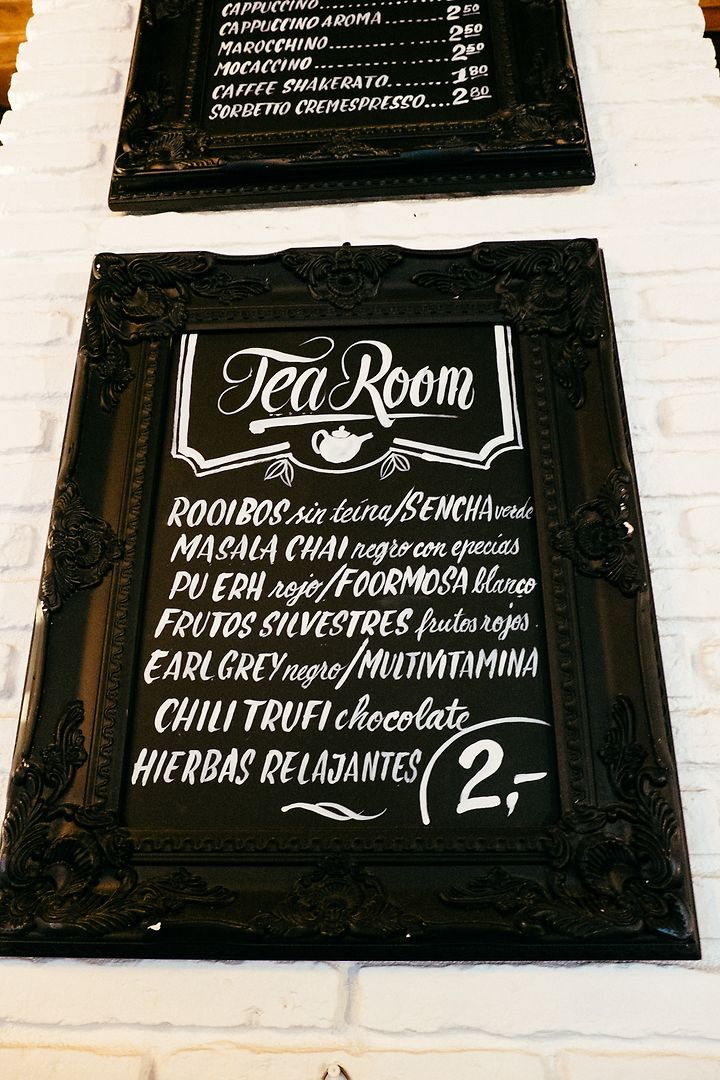 CAPPUCCINO
CAPPUCCINO AROMA ........ 2 50
MAROCCHINO............... 2 50
MOCACCINO................. 2 50
CAFFEE SHAKERATO......... 1 80
SORBETTO CREMESPRESSO.... 2 80
Tea Room
ROOIBOS sin teína/SENCHA verde
MASALA CHAI negro con epecías
PU ERH rojo/FOORMOSA blanco
FRUTOS SILVESTRES frutos rojos.
EARL GREY negro/MULTIVITAMINA
CHILI TRUFI chocolate
HIERBAS RELAJANTES 2,-